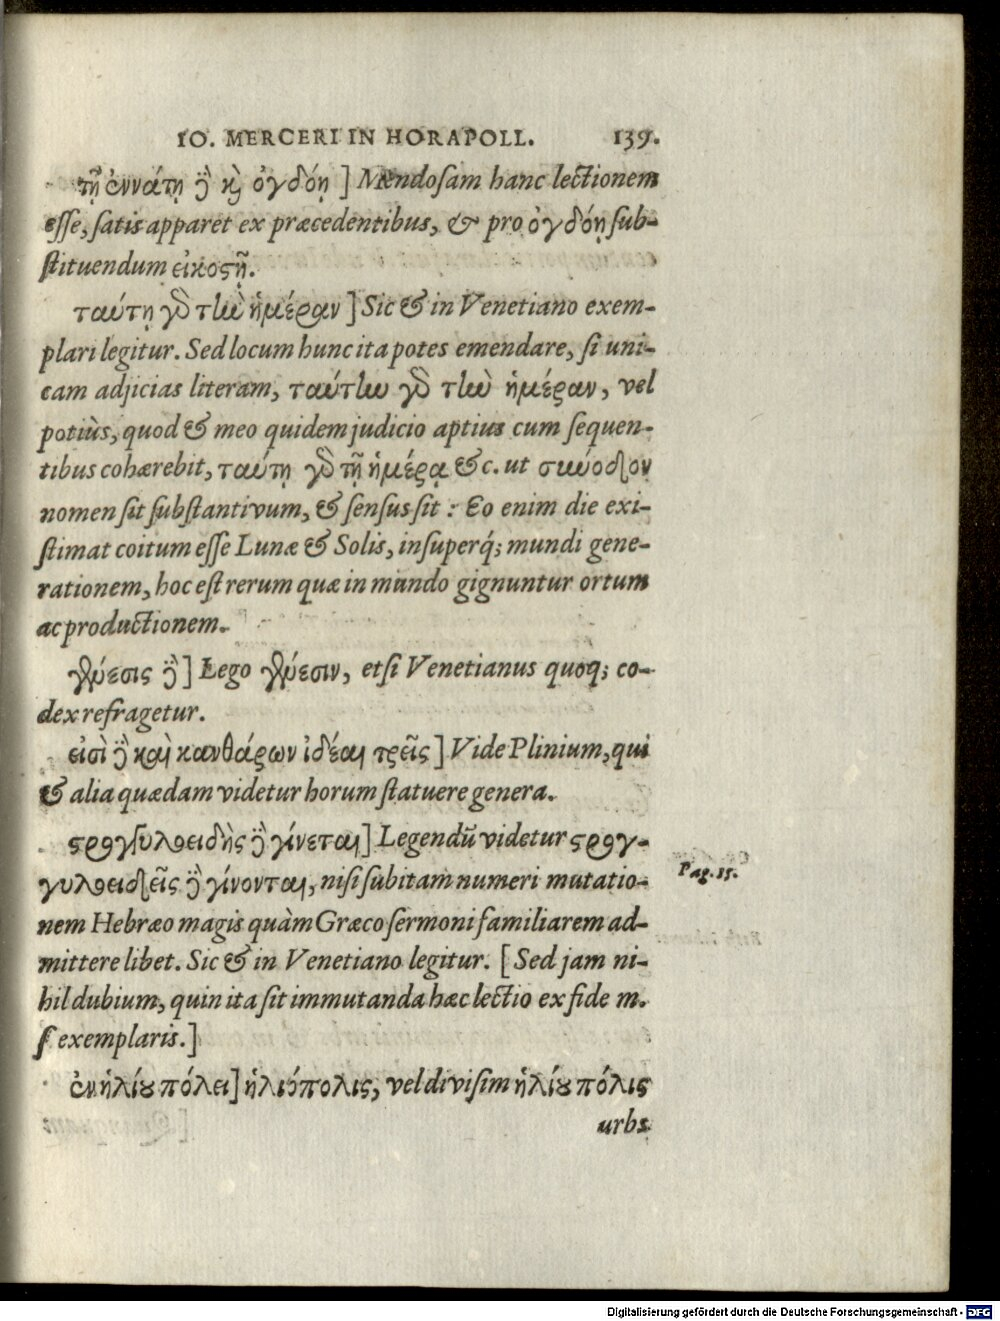 IO. MERCERI IN HORAPOLL. 139.
τῇ ἐννάτῃ δὲ καὶ ὀγδόῃ ] Mendoſam hanc lectionem
eſſe, ſatis apparet ex præcedentibus, & pro ὀγδόῃ ſub-
ſtituendum εἰκοςῇ.
ταύτῃ γὸ τἰω ἡμέραν ] Sic & in Venetiano exem-
plari legitur. Sed locum hunc ita potes emendare, ſi uni-
cam adjicias literam, ταύτἰω γὸ τἰω ἡμέραν, vel
potiùs, quod & meo quidem judicio aptius cum ſequen-
tibus cohærebit, ταύτῃ γὸ τῇ ἡμέρᾳ & c. ut σύνοδον
nomen ſit ſubſtantivum, & ſenſus ſit : Eo enim die exi-
ſtimat coitum eſſe Lunæ & Solis, inſuperq́; mundi gene-
rationem, hoc eſt rerum quæ in mundo gignuntur ortum
ac productionem.
γένεσις δὲ ] Lego γένεσιν, etſi Venetianus quoq; co-
dex refragetur.
εἰσὶ δὲ καὶ κανθάρων ἰδέαι τρεῖς ] Vide Plinium, qui
& alia quædam videtur horum ſtatuere genera.
ςρογγυλοειδὴς δὲ γίνεται] Legendũ videtur ςρογ-
γυλοειδεῖς δὲ γίνονται, niſi ſubitam numeri mutatio-
nem Hebræo magis quàm Græco ſermoni familiarem ad-
mittere libet. Sic & in Venetiano legitur. [ Sed jam ni-
hil dubium, quin ita ſit immutanda hæc lectio ex fide m.
ſ exemplaris.]
Pag. 15.
ἐν ἡλίου πόλει] ἡλιόπολις, vel diviſim ἡλίου πόλις
urbs
Digitalisierung gefördert durch die Deutsche Forschungsgemeinschaft - DFG